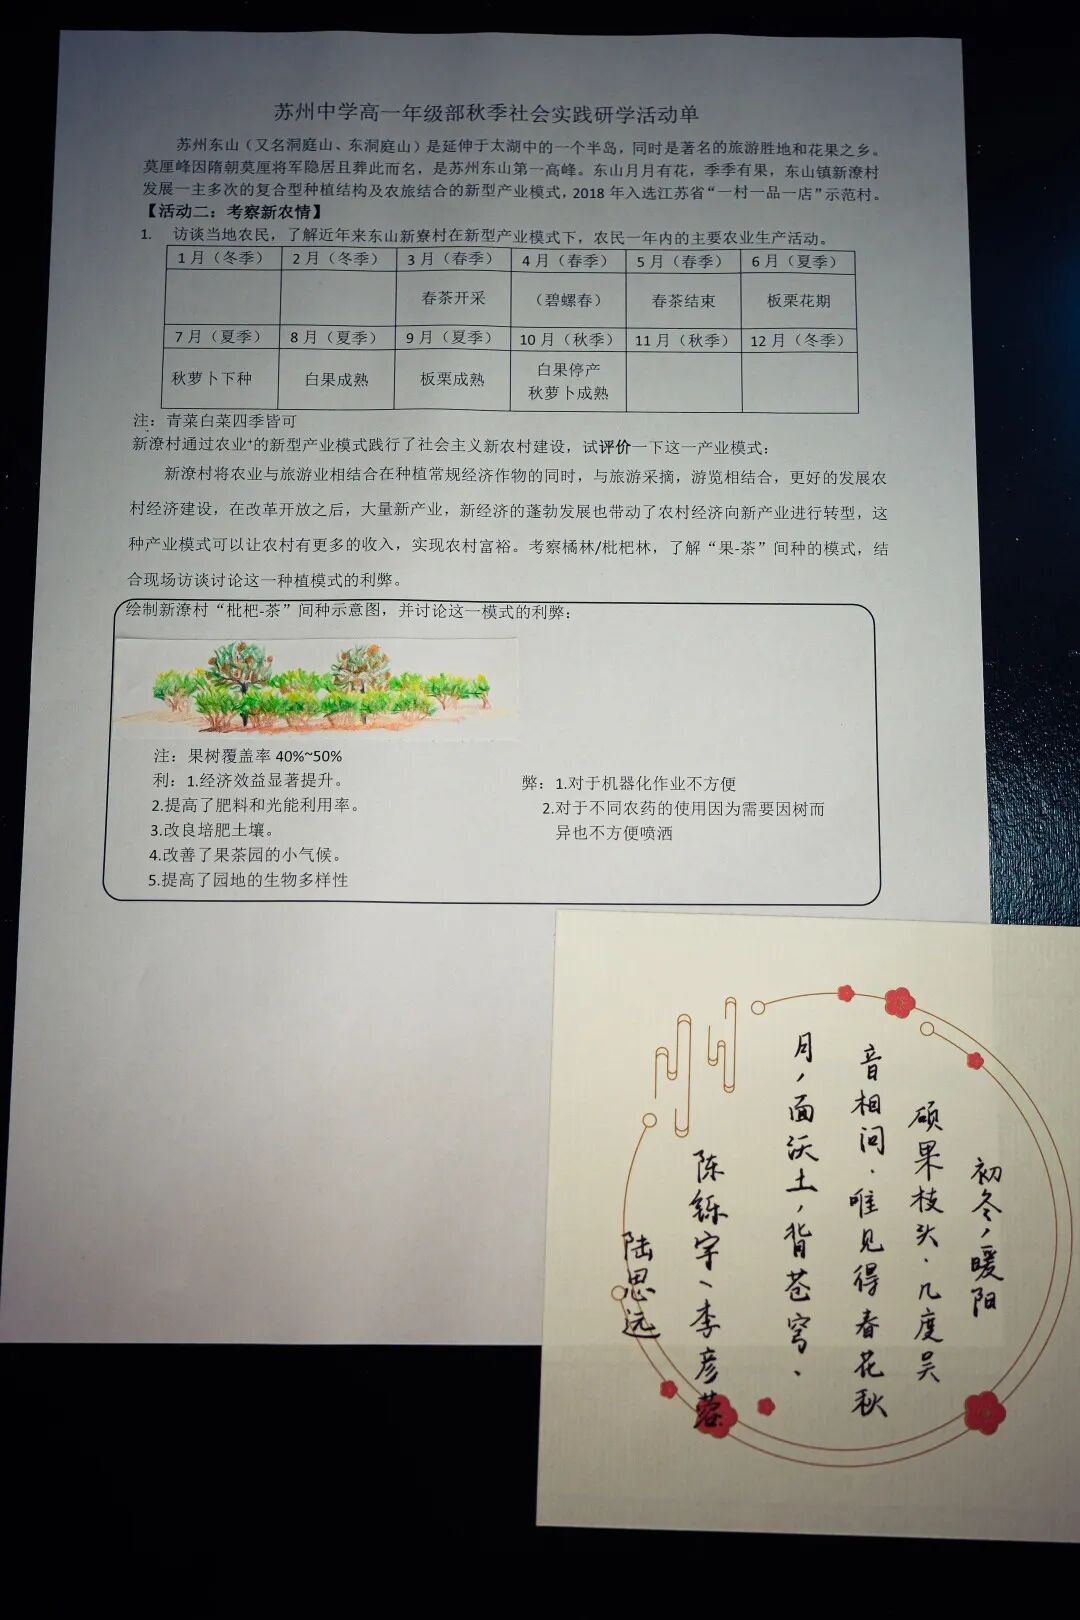 苏州中学高一年级部秋季社会实践研学活动单
苏州东山（又名洞庭山、东洞庭山）是延伸于太湖中的一个半岛，同时是著名的旅游胜地和花果之乡。
莫厘峰因隋朝莫厘将军隐居且葬此而名，是苏州东山第一高峰。东山月月有花，季季有果，东山镇新潦村
发展一主多次的复合型种植结构及农旅结合的新型产业模式，2018 年入选江苏省“一村一品一店”示范村。
【活动二：考察新农情】
1. 访谈当地农民，了解近年来东山新寮村在新型产业模式下，农民一年内的主要农业生产活动。
1 月（冬季） 2 月（冬季） 3 月（春季） 4 月（春季） 5 月（春季） 6 月（夏季）
春茶开采 （碧螺春） 春茶结束 板栗花期
7 月（夏季） 8 月（夏季） 9 月（夏季） 10 月（秋季） 11 月（秋季） 12 月（冬季）
秋萝卜下种 白果成熟 板栗成熟 白果停产
秋萝卜成熟
注：青菜白菜四季皆可
新潦村通过农业+的新型产业模式践行了社会主义新农村建设，试评价一下这一产业模式：
新潦村将农业与旅游业相结合在种植常规经济作物的同时，与旅游采摘，游览相结合，更好的发展农
村经济建设，在改革开放之后，大量新产业，新经济的蓬勃发展也带动了农村经济向新产业进行转型，这
种产业模式可以让农村有更多的收入，实现农村富裕。考察橘林/枇杷林，了解“果-茶”间种的模式，结
合现场访谈讨论这一种植模式的利弊。
绘制新潦村“枇杷-茶”间种示意图，并讨论这一模式的利弊：
注：果树覆盖率 40%~50%
利：1.经济效益显著提升。
2.提高了肥料和光能利用率。
3.改良培肥土壤。
4.改善了果茶园的小气候。
5.提高了园地的生物多样性
弊：1.对于机器化作业不方便
2.对于不同农药的使用因为需要因树而
异也不方便喷洒
初冬，暖阳
硕果枝头、几度吴
音相问、唯见得春花秋
月，面沃土，背苍穹、
陈铄宇、李彦蓉
陆思远